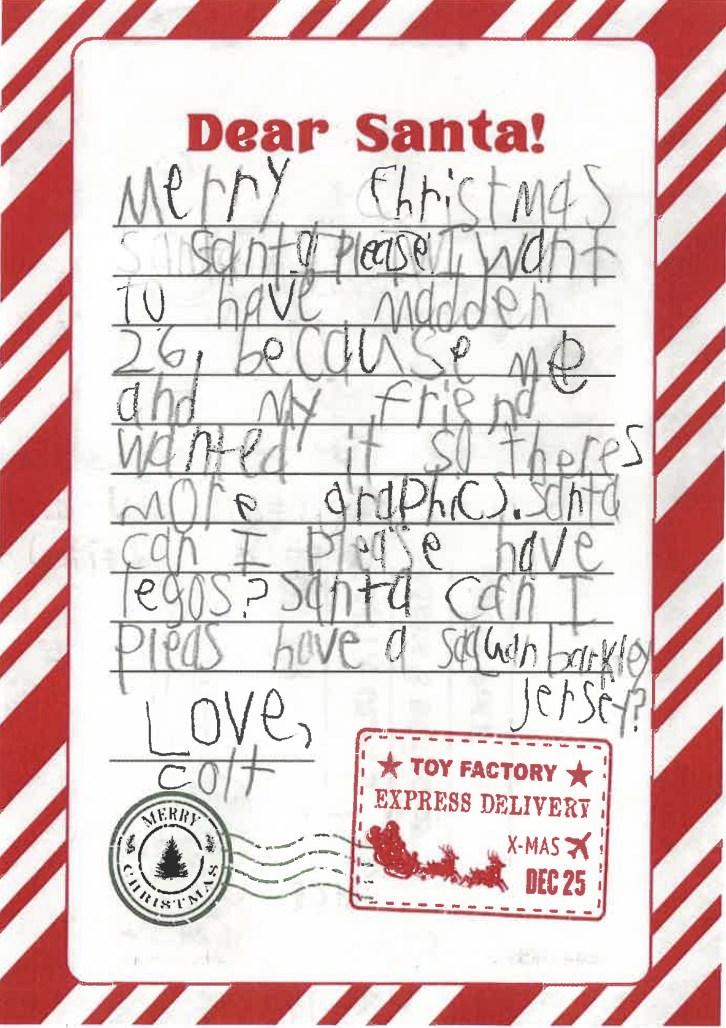 Dear Santa!
Merry Christmas
santa please I want
to have madden
26, because me
and my friend
wanted it so theres
more graphics. santa
can I please have
legos? santa can I
pleas have a saquan barkley
jersey?
Love,
colt
MERRY
CHRISTMAS
TOY FACTORY
EXPRESS DELIVERY
X-MAS
DEC 25